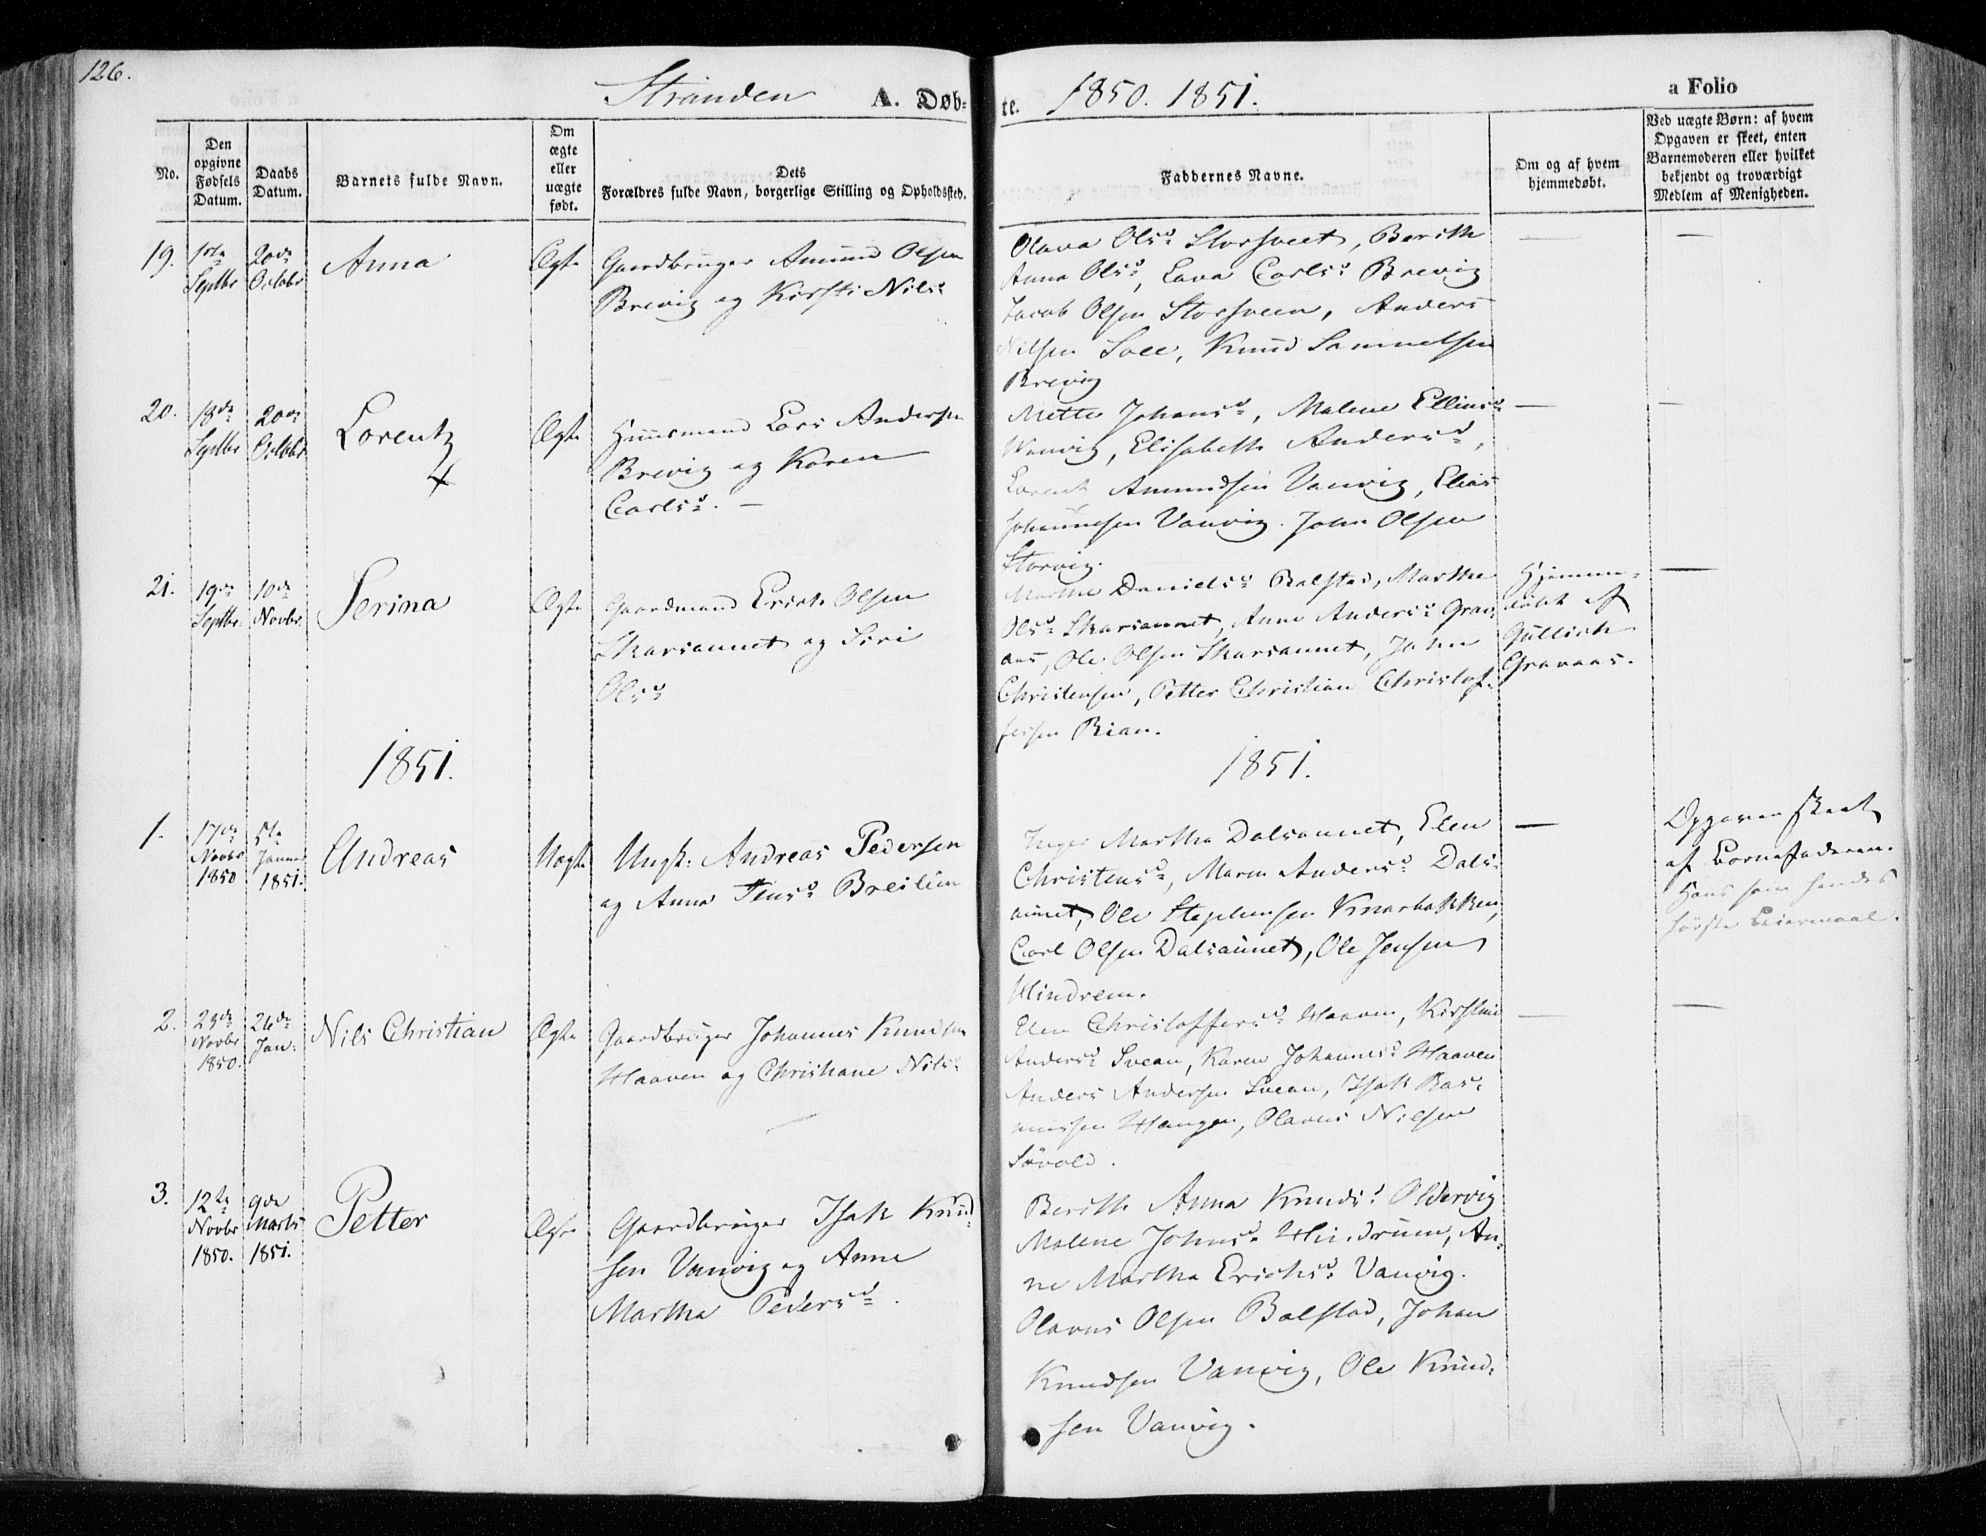 126.
Stranden A. Døb-
te. 1850. 1851.
a Folio
No.
Den
opgivne
Fødsels
Datum.
Daabs
Datum.
Barnets fulde Navn.
Om
ægte
eller
uægte
født.
Dets
Forældres fulde Navn, borgerlige Stilling og Opholdssted.
Faddernes Navne.
Om og af hvem
hjemmedøbt.
Ved uægte Børn: af hvem
Opgaven er skeet, enten
Barnemoderen eller hvilket
bekjendt og troværdigt
Medlem af Menigheden.
19.
1ste
Septbr
20de
Octobr
Anna
Ægte
Gaardbruger Amund Olsen
Brevig og Kirsti Nilsd
Olava Olsd Storsveet, Berith
Anna Olsd, Lava Carlsd Brevig
Jacob Olsen Storsveen, Anders
Nilsen Soll, Knud Samuelsen
Brevig
—
—
20.
18de
Septbr
20de
Octobr
Lorentz
Ægte
Huusmand Lars Andersen
Brevig og Karen
Carlsd. —
Mette Johansd, Malene Ellingsd
Vanvig, Elisabeth Andersd,
Lorents Amundsen Vanvig, Elias
Johannesen Vanvig. John Olsen
Storvig.
—
—
21.
19de
Septbr
10de
Novbr
Serina
Ægte
Gaardmand Erich Olsen
Skarsaunet og Siri
Olsd
Marthe Danielsd Balstad, Marthe
Olsd Skarsaunet, Anne Andersd Grav-
aas, Ole Olsen Skarsaunet, John
Christensen, Petter Christian Christof-
fersen Rian.
Hjemme-
døbt af
Gullich
Gravaas.
—
1851.
1851.
1.
17de
Novbr
1850
5te
Januar
1851.
Andreas
Uægte
Ungk: Andreas Pedersen
og Anna Jensd Breilien
Inger Martha Dalsaunet, Elen
Christensd, Maren Andersd Dals-
aunet, Ole Stephensen Knarbakken,
Carl Olsen Dalsaunet, Ole Jensen
Hindrem.
—
Opgaven skeet
af Barnefaderen.
Hans som hendes
første Leiermaal.
2.
23de
Novbr
1850.
26de
Jan:
Nils Christian
Ægte
Gaardbruger Johannes Knudsen
Haaven og Christiane Nilsd
Elen Christoffersd Haaven, Kirstine
Andersd Svean, Karen Johannesd Haaven
Anders Andersen Svean, Isak Ras-
mussen Haugen, Olavus Nilsen
Søvold.
—
—
3.
12te
Novbr
1850.
9de
Marts
1851.
Petter
Ægte
Gaardbruger Isak Knud-
sen Vanvig og Anne
Martha Pedersd.
Berith Anna Knudsd Oldervig
Malene Johnsd Hindrum, An-
ne Martha Erichsd Vanvig.
Olavus Olsen Balstad, Johan
Knudsen Vanvig, Ole Knud-
sen Vanvig.